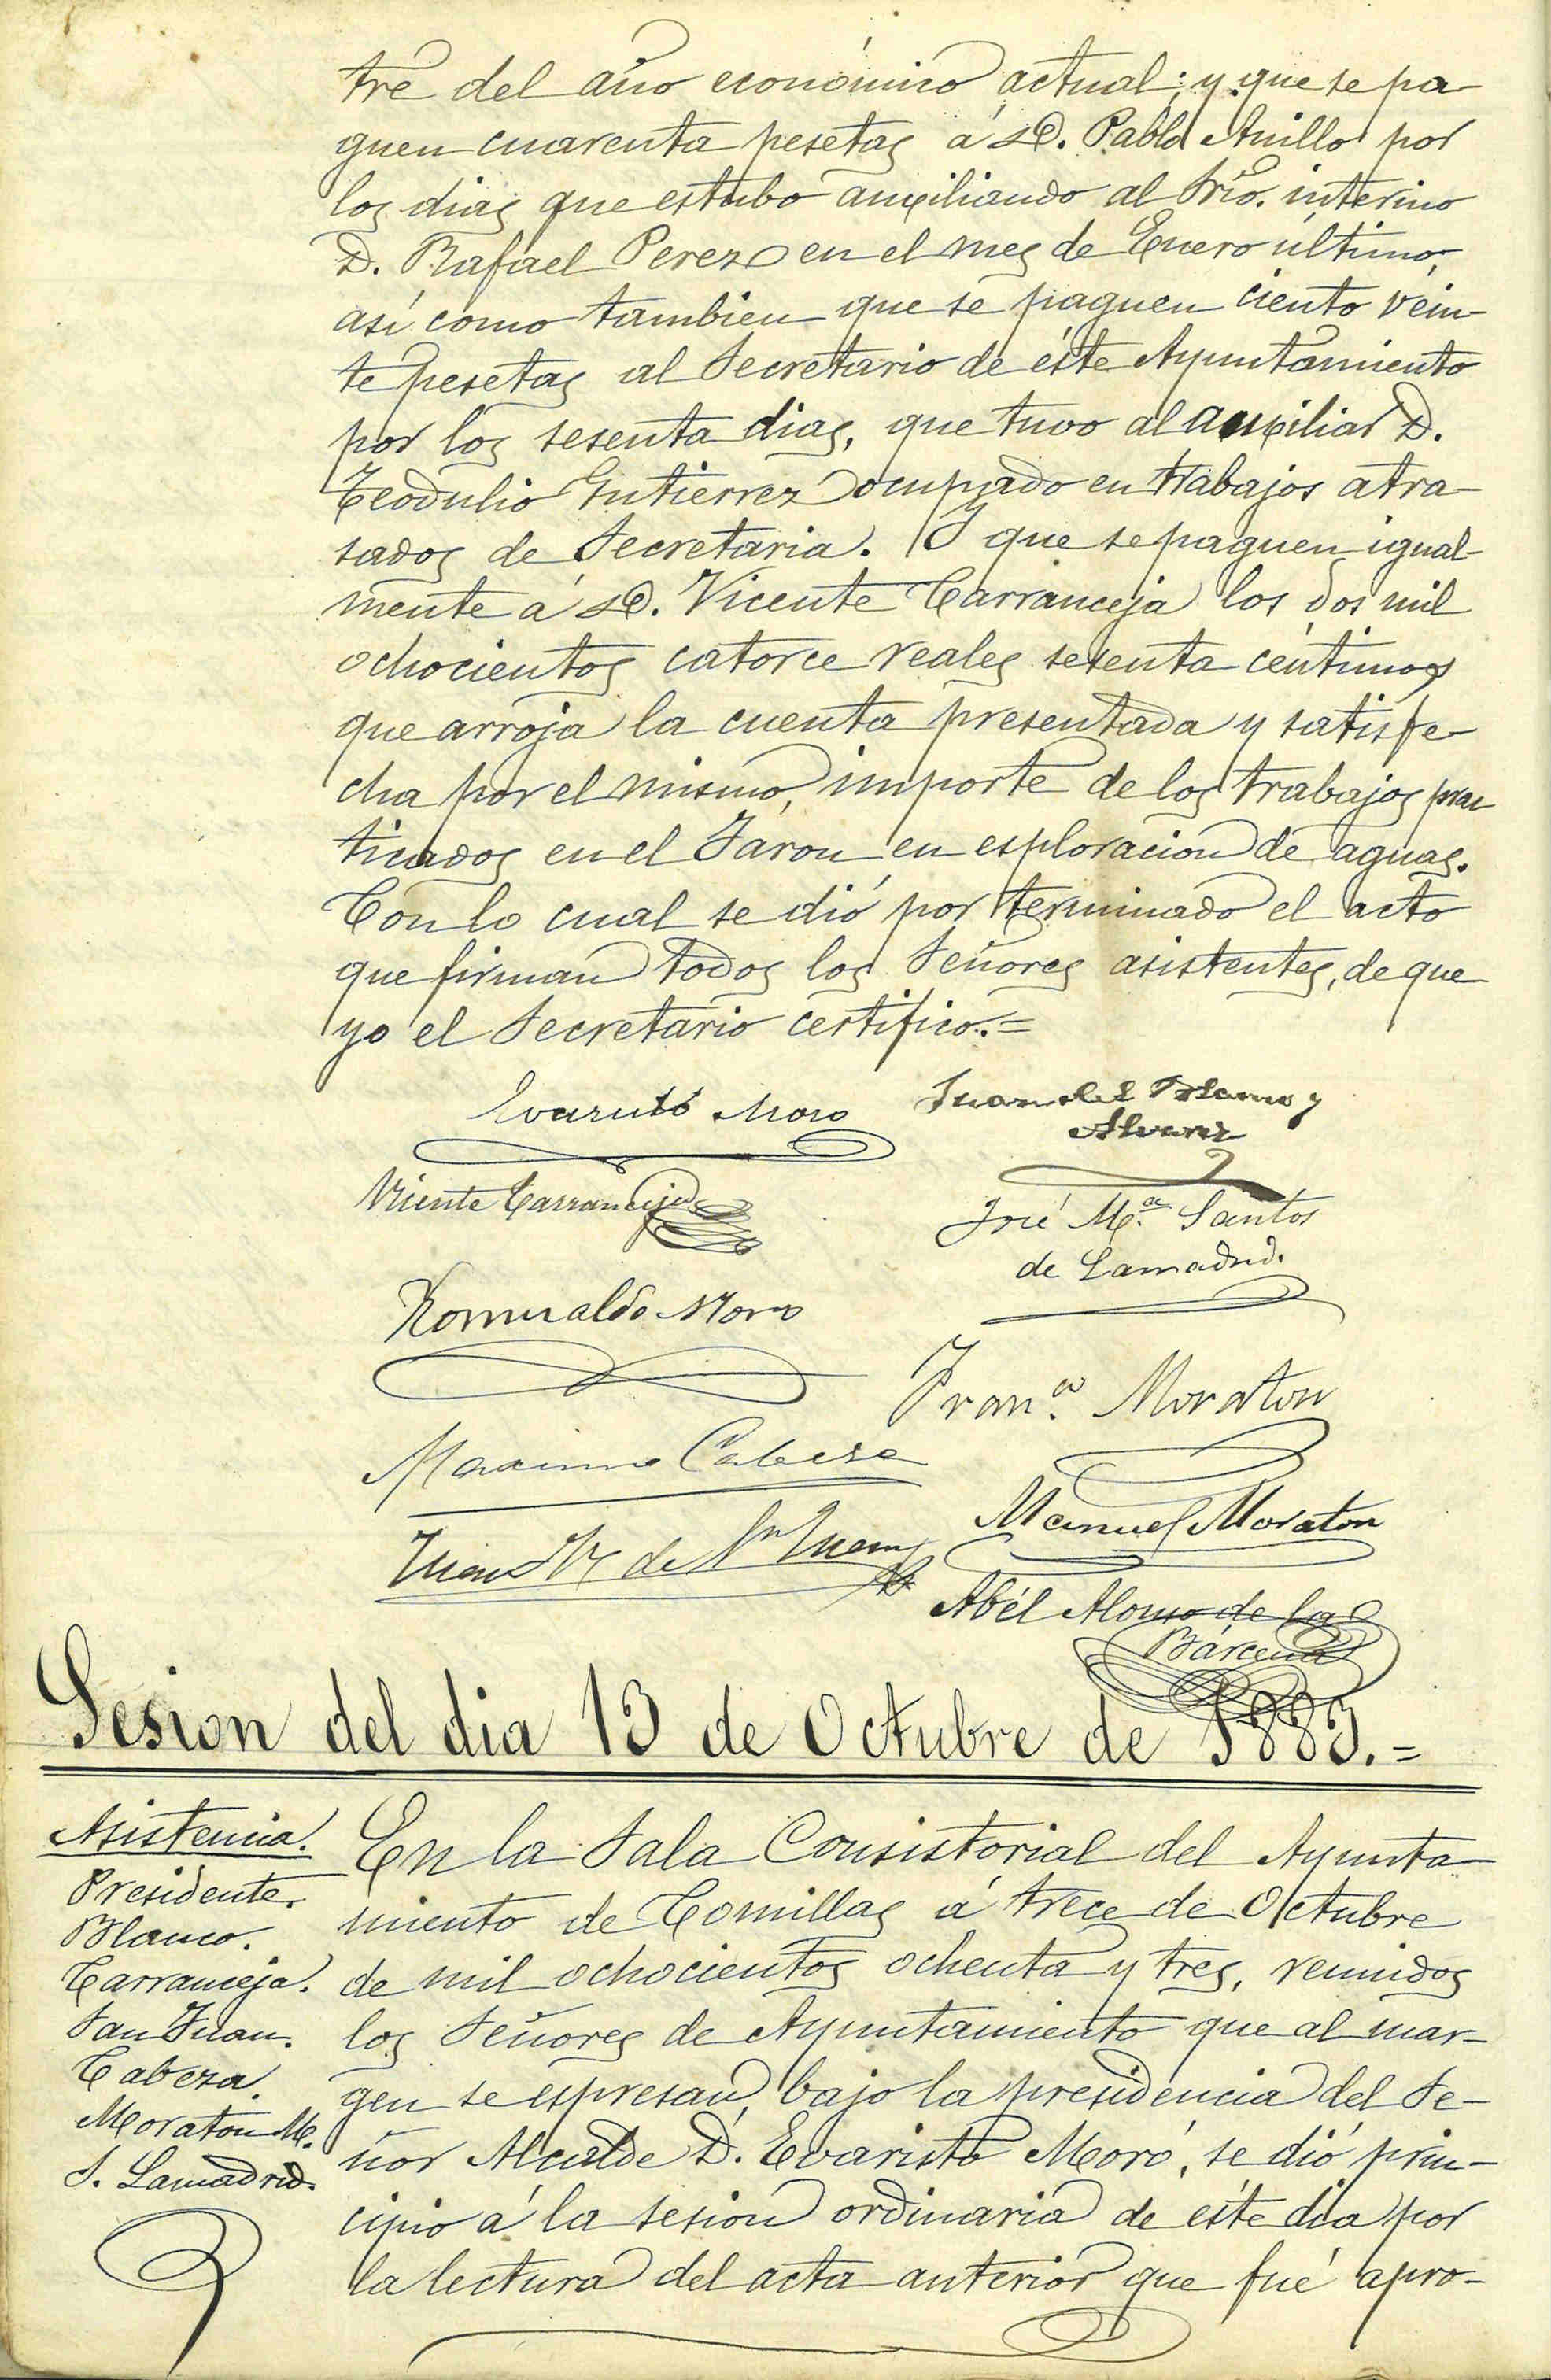 tre del año económico actual; y que se pa-
guen cuarenta pesetas á D. Pablo Anillo por
los dias que estubo auxiliando al Srio. interino
D. Rafael Perez en el mes de Enero último,
así como tambien que se paguen ciento vein-
te pesetas al Secretario de éste Ayuntamiento
por los sesenta dias, que tuvo al auxiliar D.
Teodulio Gutierrez ocupado en trabajos atra-
sados de Secretaria. Y que se paguen igual-
mente á D. Vicente Carranceja los dos mil
ochocientos catorce reales sesenta céntimos
que arroja la cuenta presentada y satisfe-
cha por el mismo, importe de los trabajos prac
ticados en el Jaron en esploracion de aguas.
Con lo cual se dió por terminado el acto
que firman todos los Señores asistentes, de que
yo el Secretario certifico.=
Evaristo Moro
Juan del Blanco y
Alvarez
Vicente Carranceja
José M.ª Santos
de Lamadrid.
Romualdo Moro
Fran.co Moraton
Maximo Cabeza
Manuel Moraton
Juan de Sn Juan
Abél Alonso de la
Bárcena
Sesion del dia 13 de Octubre de 1883.=
Asistencia.
Presidente.
Blanco.
Carranceja.
San Juan.
Cabeza.
Moraton M.
S. Lamadrid.
En la Sala Consistorial del Ayunta-
miento de Comillas á trece de Octubre
de mil ochocientos ochenta y tres, reunidos
los Señores de Ayuntamiento que al mar-
gen se espresan, bajo la presidencia del Se-
ñor Alcalde D. Evaristo Moro, se dió prin-
cipio á la sesion ordinaria de éste dia por
la lectura del acta anterior que fué apro-